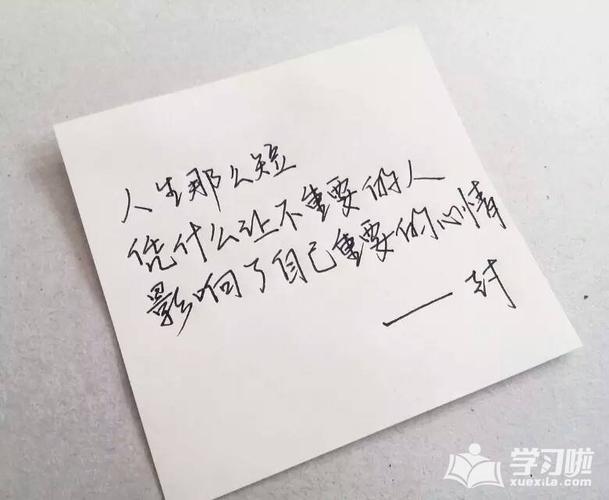 人生那么短
凭什么让不重要的人
影响了自己重要的心情
学习啦
xuexila.com